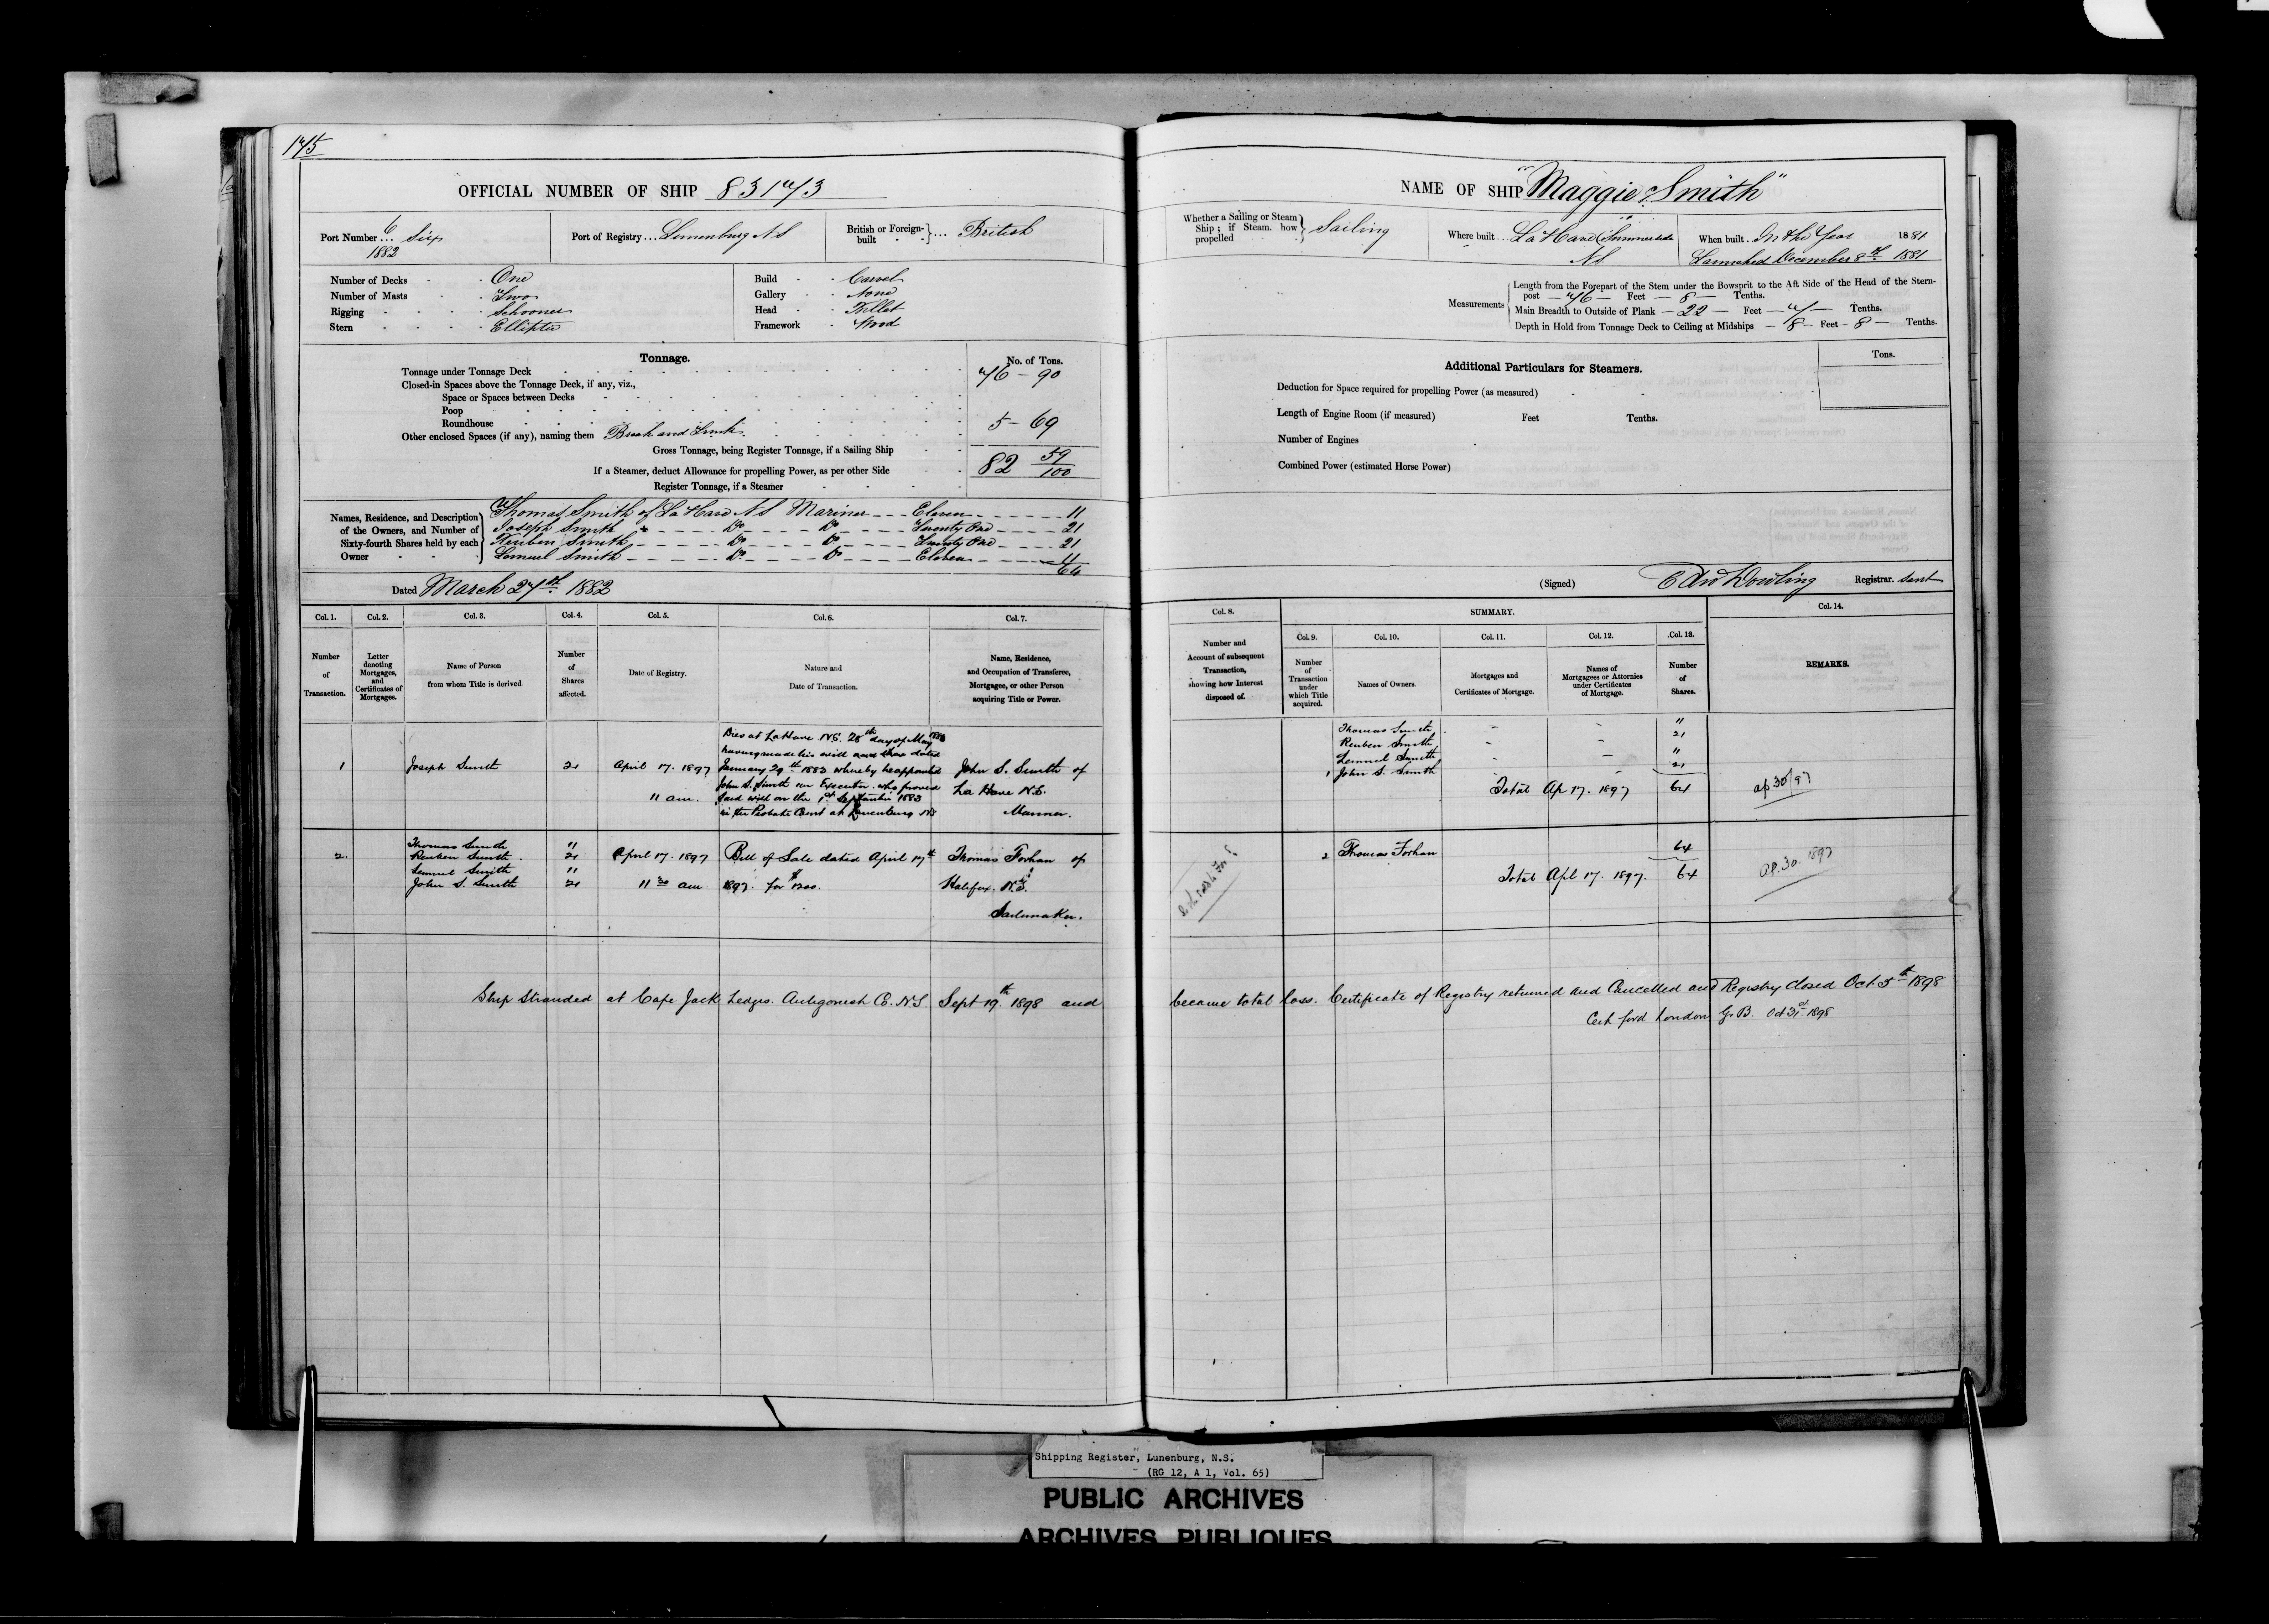 175
OFFICIAL NUMBER OF SHIP 83173
Port Number 6 Six
1882
Port of Registry Lunenburg N S
British or Foreign-built British
Number of Decks One
Number of Masts Two
Rigging Schooner
Stern Elliptic
Build Carvel
Gallery None
Head Fillet
Framework Wood
Tonnage.
No. of Tons.
Tonnage under Tonnage Deck 76 - 90
Closed-in Spaces above the Tonnage Deck, if any, viz.,
Space or Spaces between Decks
Poop
Roundhouse
Other enclosed Spaces (if any), naming them Break and Trunk 5 - 69
Gross Tonnage, being Register Tonnage, if a Sailing Ship 82 59/100
If a Steamer, deduct Allowance for propelling Power, as per other Side
Register Tonnage, if a Steamer
Names, Residence, and Description of the Owners, and Number of Sixty-fourth Shares held by each Owner
Thomas Smith of La Have N S Mariner Eleven 11
Joseph Smith Do Do Twenty One 21
Reuben Smith Do Do Twenty One 21
Lemuel Smith Do Do Eleven 11
64
Dated March 27th 1882
Col. 1. Col. 2. Col. 3. Col. 4. Col. 5. Col. 6. Col. 7.
Number of Transaction.
Letter denoting Mortgages, and Certificates of Mortgages.
Name of Person from whom Title is derived
Number of Shares affected.
Date of Registry.
Nature and Date of Transaction.
Name, Residence, and Occupation of Transferee, Mortgagee, or other Person acquiring Title or Power.
1 Joseph Smith 21 April 17. 1897
11 am.
Dies at LaHave N.S. 28th day of May 1883
having made his will dated
January 29th 1883 whereby he appointed
John S. Smith Executor who proved
said will on the 1st September 1883
in the Probate Court at Lunenburg NS
John S. Smith of
La Have N.S.
Mariner.
2. Thomas Smith 11
Reuben Smith 21
Lemuel Smith 11
John S. Smith 21
April 17. 1897
11 30 am
Bill of Sale dated April 17th
1897. for $1200.
Thomas Forhan of
Halifax. N.S.
Sailmaker.
Ship Stranded at Cape Jack Ledges. Antigonish Co. N.S. Sept 19th 1898 and
NAME OF SHIP "Maggie Smith"
Whether a Sailing or Steam Ship; if Steam. how propelled Sailing
Where built La Have (Summerside
N.S.
When built In the Year 1881
Launched December 8th 1881
Measurements
Length from the Forepart of the Stem under the Bowsprit to the Aft Side of the Head of the Stern-
post — 76 — Feet — 8 — Tenths.
Main Breadth to Outside of Plank — 22 — Feet — 7 — Tenths.
Depth in Hold from Tonnage Deck to Ceiling at Midships — 8 — Feet — 8 — Tenths.
Additional Particulars for Steamers.
Tons.
Deduction for Space required for propelling Power (as measured)
Length of Engine Room (if measured) Feet Tenths.
Number of Engines
Combined Power (estimated Horse Power)
(Signed) Edw Dowling Registrar. sent
Col. 8. SUMMARY. Col. 14.
Col. 9. Col. 10. Col. 11. Col. 12. Col. 13.
Number and Account of subsequent Transaction, showing how Interest disposed of.
Number of Transaction under which Title acquired.
Names of Owners.
Mortgages and Certificates of Mortgage.
Names of Mortgagees or Attornies under Certificates of Mortgage.
Number of Shares.
REMARKS.
Thomas Smith 11
Reuben Smith 21
Lemuel Smith 11
1 John S. Smith 21
Total Ap 17. 1897 64
ap 30/97
2 Thomas Forhan 64
Total Apl 17. 1897. 64
Ap. 30. 1897
became total loss. Certificate of Registry returned and Cancelled and Registry closed Oct 5th 1898
Cert ford London G.B. Oct 31st 1898
Shipping Register, Lunenburg, N.S.
(RG 12, A 1, Vol. 65)
PUBLIC ARCHIVES
ARCHIVES PUBLIQUES